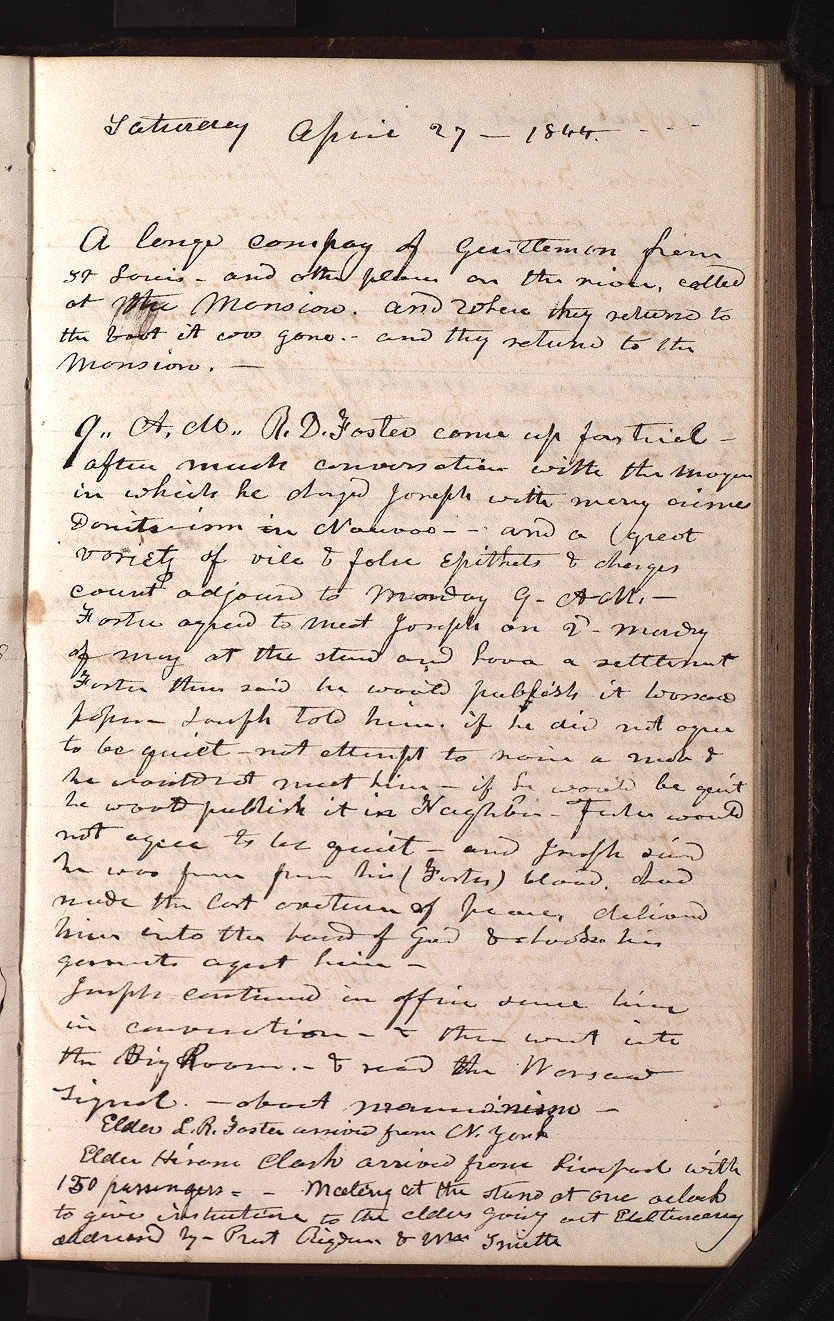 Saturday April 27 — 1844. - -
A large compay of Gentlemen from
St Louis - and othe places on the river, called
at the Mansion. and when they returned to
the boat it was gone. - and they returnd to the
Mansion. —
9,, A,, M,, R. D. Foster come up for trial -
after much conversation with the mayor
in which he charged Joseph with many crimes
Daniteism in Nauvoo - - and a (great
variety of vile & false epithets & charges
court adjourd to Monday 9- A.M. —
Foster agreed to meet Joseph on 2d- monday
of may at the stand and have a settlemnt
Foster then said he would publish it Warsaw
paper - Joseph told him. if he did not agree
to be quiet - not attempt to raise a mob &
he would not meet him - if he would be quit
he would publish it in Neighbor - Foster would
not agree to be quiet - and Joseph said
he was free from his (Foster) blood. had
made the last overture of peace, deliverd
him into the hand of God & shooke his
garments agast him -
Joseph continued in office some time
in conversation - & then went into
the Big Room. - & read the Warsaw
Signal. - about mormonism -
Elder L. R. Foster arrived from N. York
Elder Hiram Clark arrived from Liverpool with
150 passengers - - Meeting at the stand at one oclock
to give instructions to the elders going out Electionering
addressed by - Prest Rigdon & Wm Smith